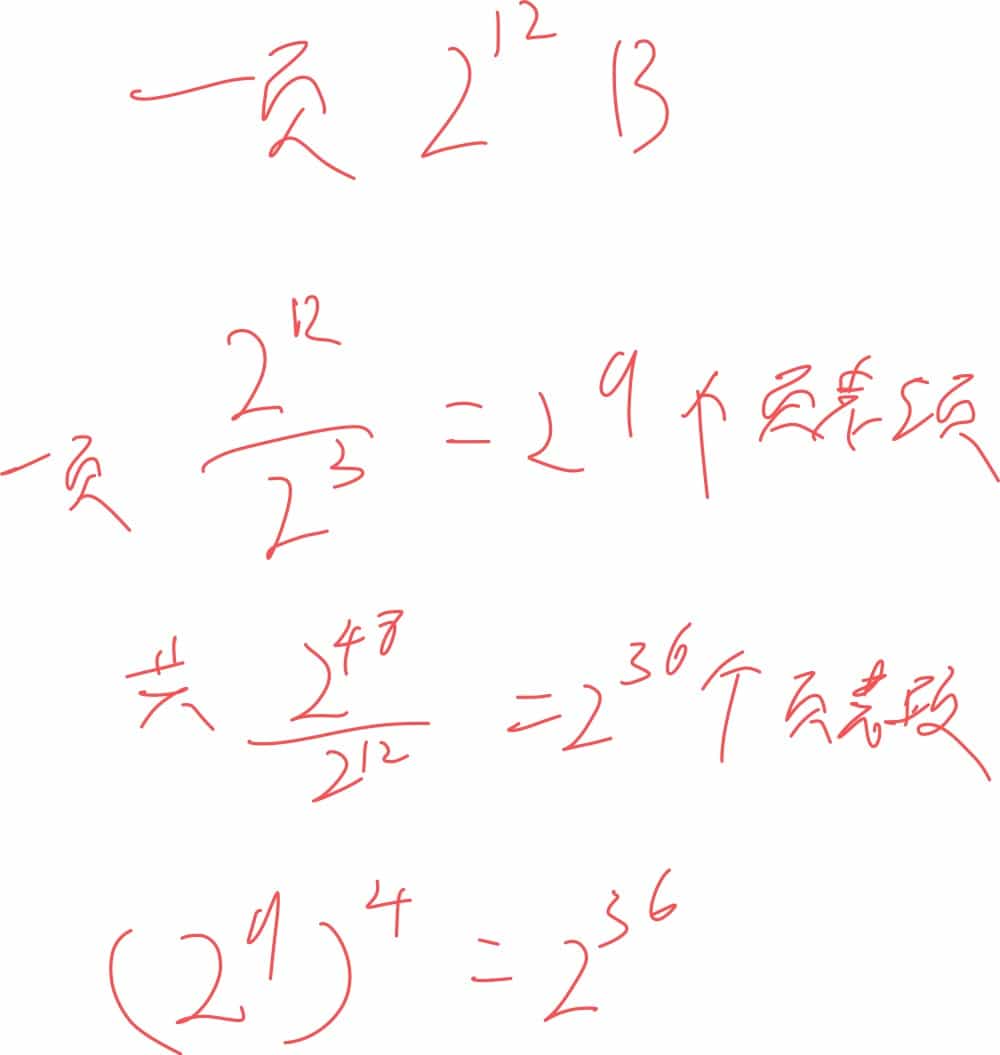 一页 2^12 B
一页 2^12/2^3 = 2^9 个页表项
共 2^48/2^12 = 2^36 个页表段
(2^9)^4 = 2^36